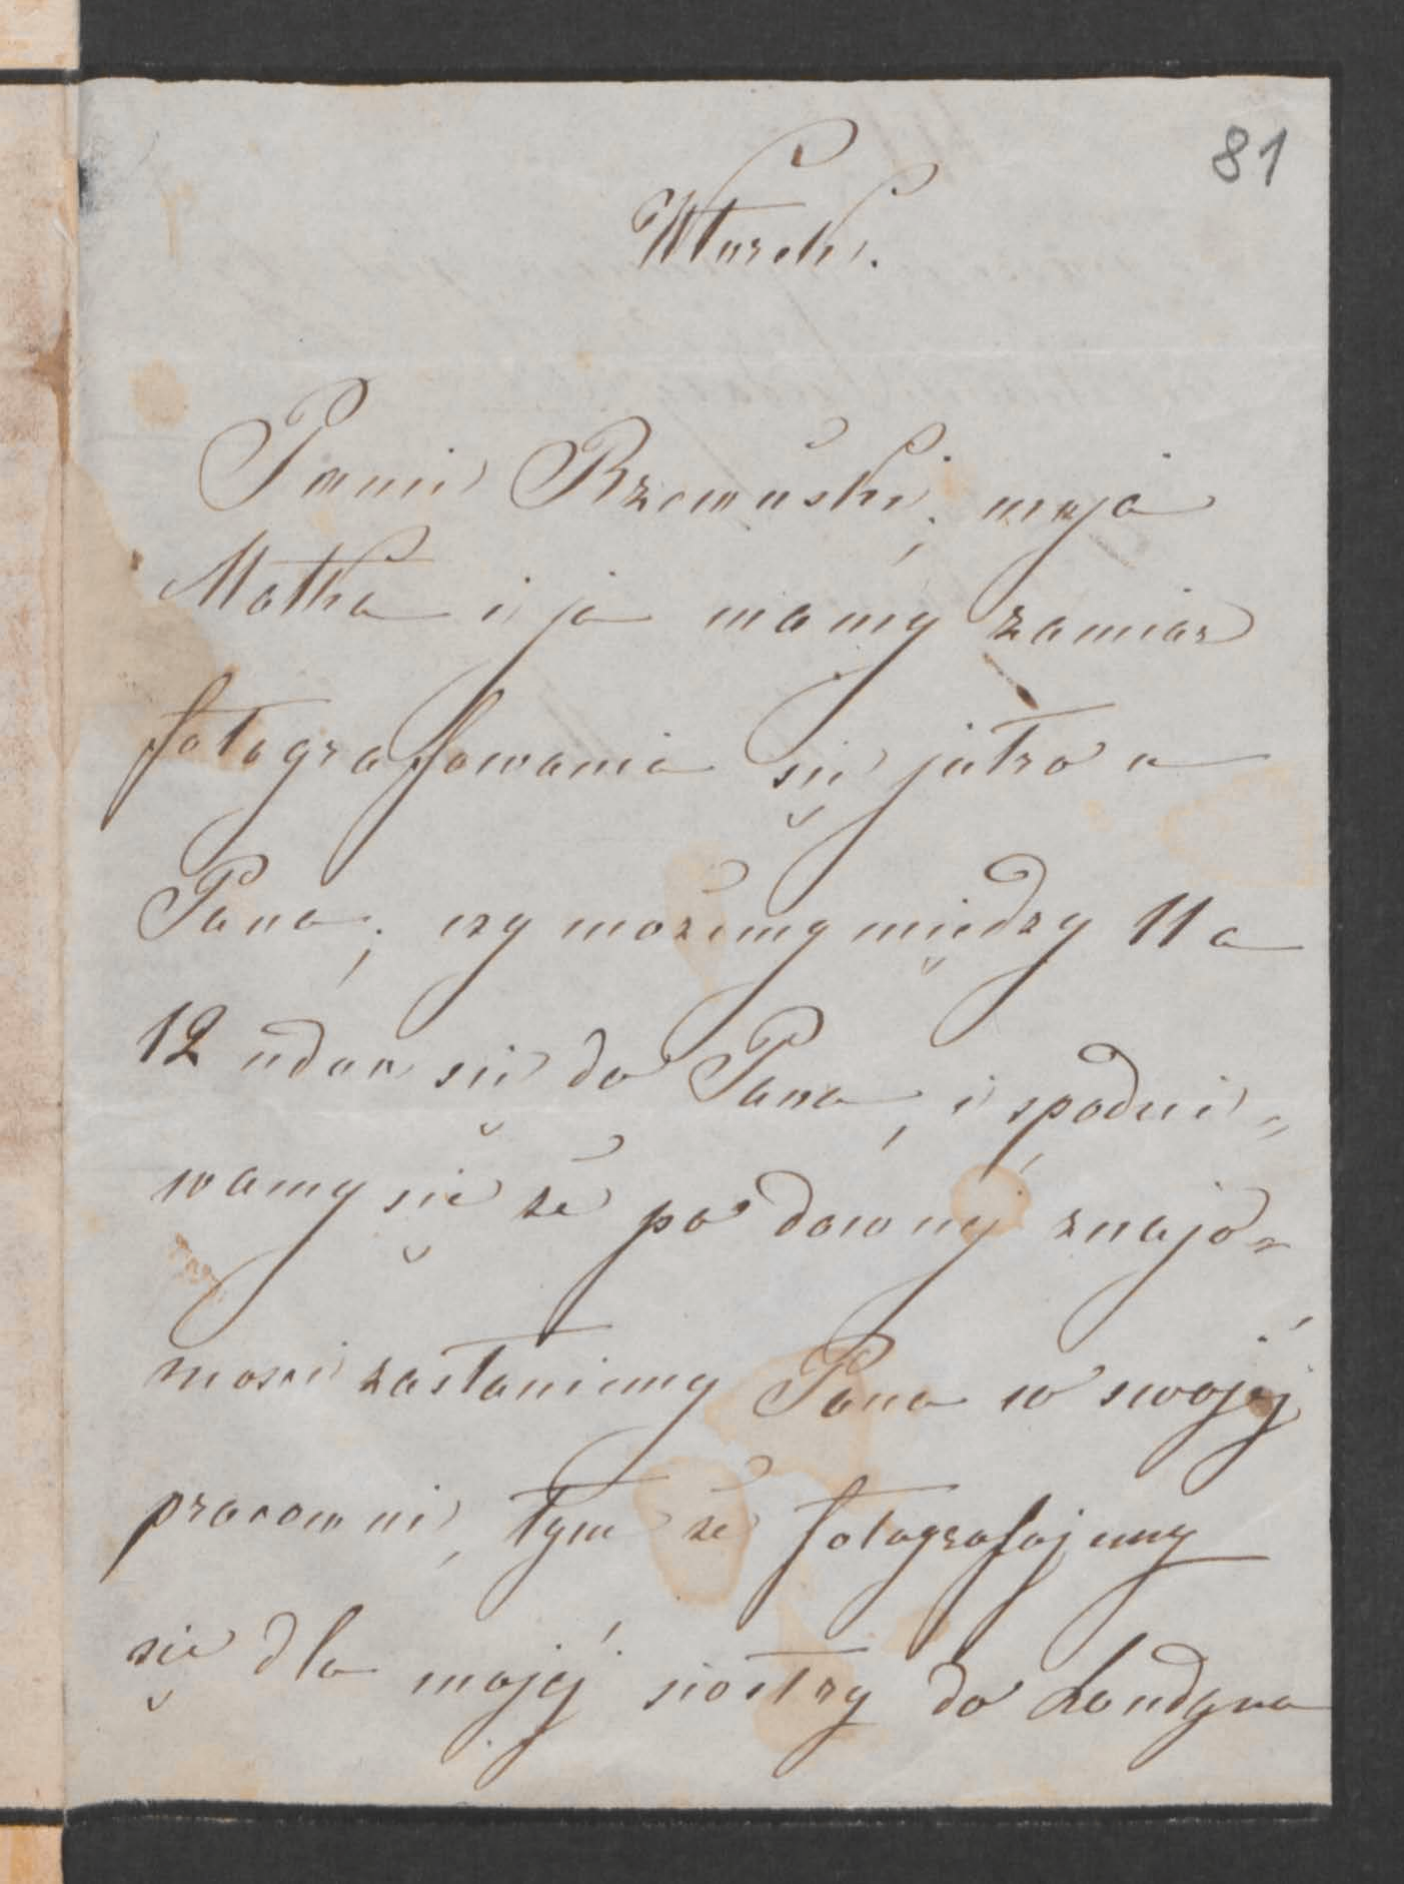 81
Wtorek.
Panie Rzewuski, moja
Matka i ja mamy zamiar
fotografowania się jutro u
Pana, czy możemy między 11 a
12 udać się do Pana, i spodzie=
wamy się że po dawnéj znajo=
mości zastaniemy Pana w swojéj
pracowni, tym że fotografujemy
się dla mojéj siostry do Londynu